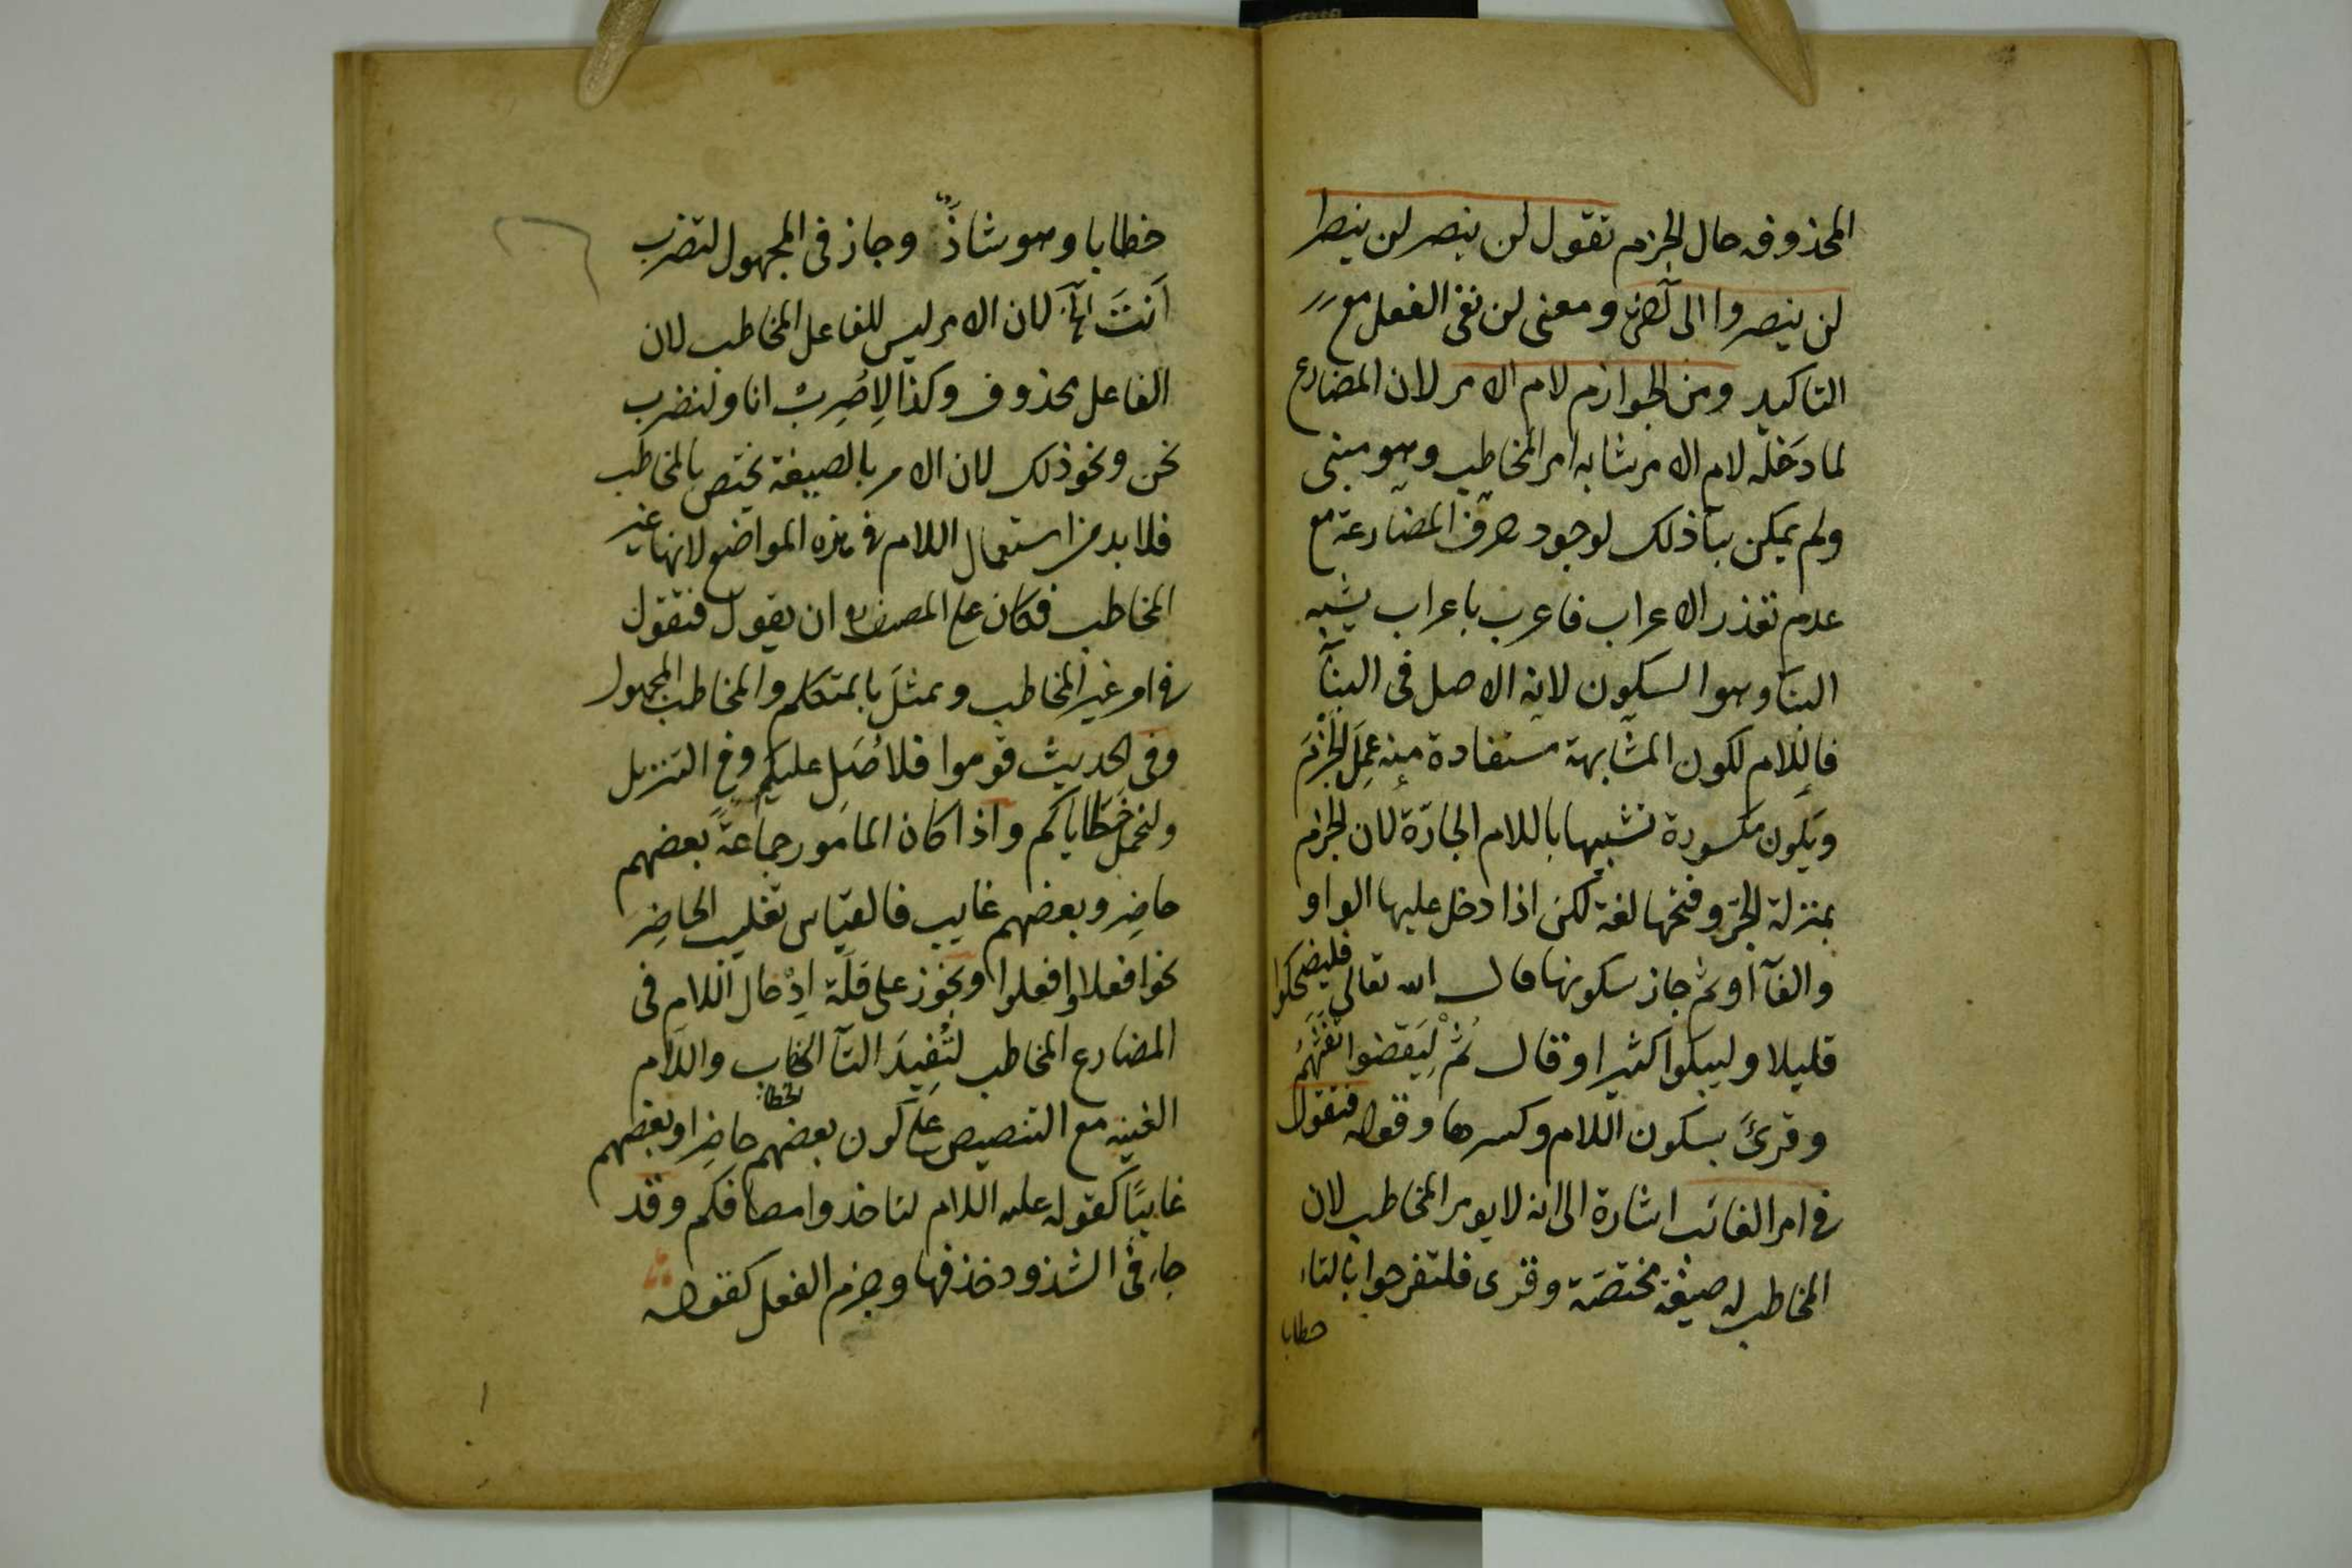 المحذوفه حال الجزم تقول لن ينصر لن ينصرا
لن ينصروا الى آخره ومعنى لن نفى الفعل مع
التاكيد ومن الجوازم لام الامر لان المضارع
لما دخله لام الامر شابه امر المخاطب وهو مبنى
ولم يمكن بناء ذلك لوجود حرف المضارعة مع
عدم تعذر الاعراب فاعرب باعراب يشبه
البناء وهو السكون لانه الاصل فى البنآء
فاللام لكون المشابهة مستفادة منه عمل الجزم
ويكون مكسورة تشبيها باللام الجارّة لان الجزم
بمنزلة الجرّ وفتحها لغة لكن اذا دخل عليها الواو
والفآء او ثم جاز سكونها قال الله تعالى فليضحكوا
قليلا وليبكوا كثيرا وقال ثم لِيَقضوا تفثهم
وقرئ بسكون اللام وكسرها وقوله فتقول
فى امر الغائب اشارة الى انه لا يومر المخاطب لان
المخاطب له صيغة مختصّة وقرى فلتفرحوا بالتاء
خطابا
خطابا وهو شاذّ وجاز فى المجهول لتضرب
اَنتَ الخ لان الامر ليس للفاعل المخاطب لان
الفاعل محذوف وكذا لِاُضرب انا ولنضرب
نحن ونحو ذلك لان الامر بالصيغة يختص بالمخاطب
فلا بد من استعمال اللام فى هذه المواضع لانها غير
المخاطب فكان على المصنف ره ان يقول فتقول
فى امر غير المخاطب ويمثل بالمتكلم والمخاطب المجهول
وفى الحديث قوموا فلاُصَلِ عليكم وفى التنزيل
ولنحمل خطاياكم واذا كان المامور جماعةً بعضهم
حاضِر وبعضهم غايب فالقياس تغليب الحاضِر
نحو افعلا وافعلوا ويجوز على قلّة اِدْخال اللام فى
المضارع المخاطب لتُفِيدَ التآء الخاب واللام
الخطاب
الغيبه مع التنصيص على كون بعضهم حاضِرا وبعضهم
غايبًا كقوله عليه اللام لتاخذوا مصافكم وقد
جاء فى الشذوذ حذفها وجزم الفعل كقوله